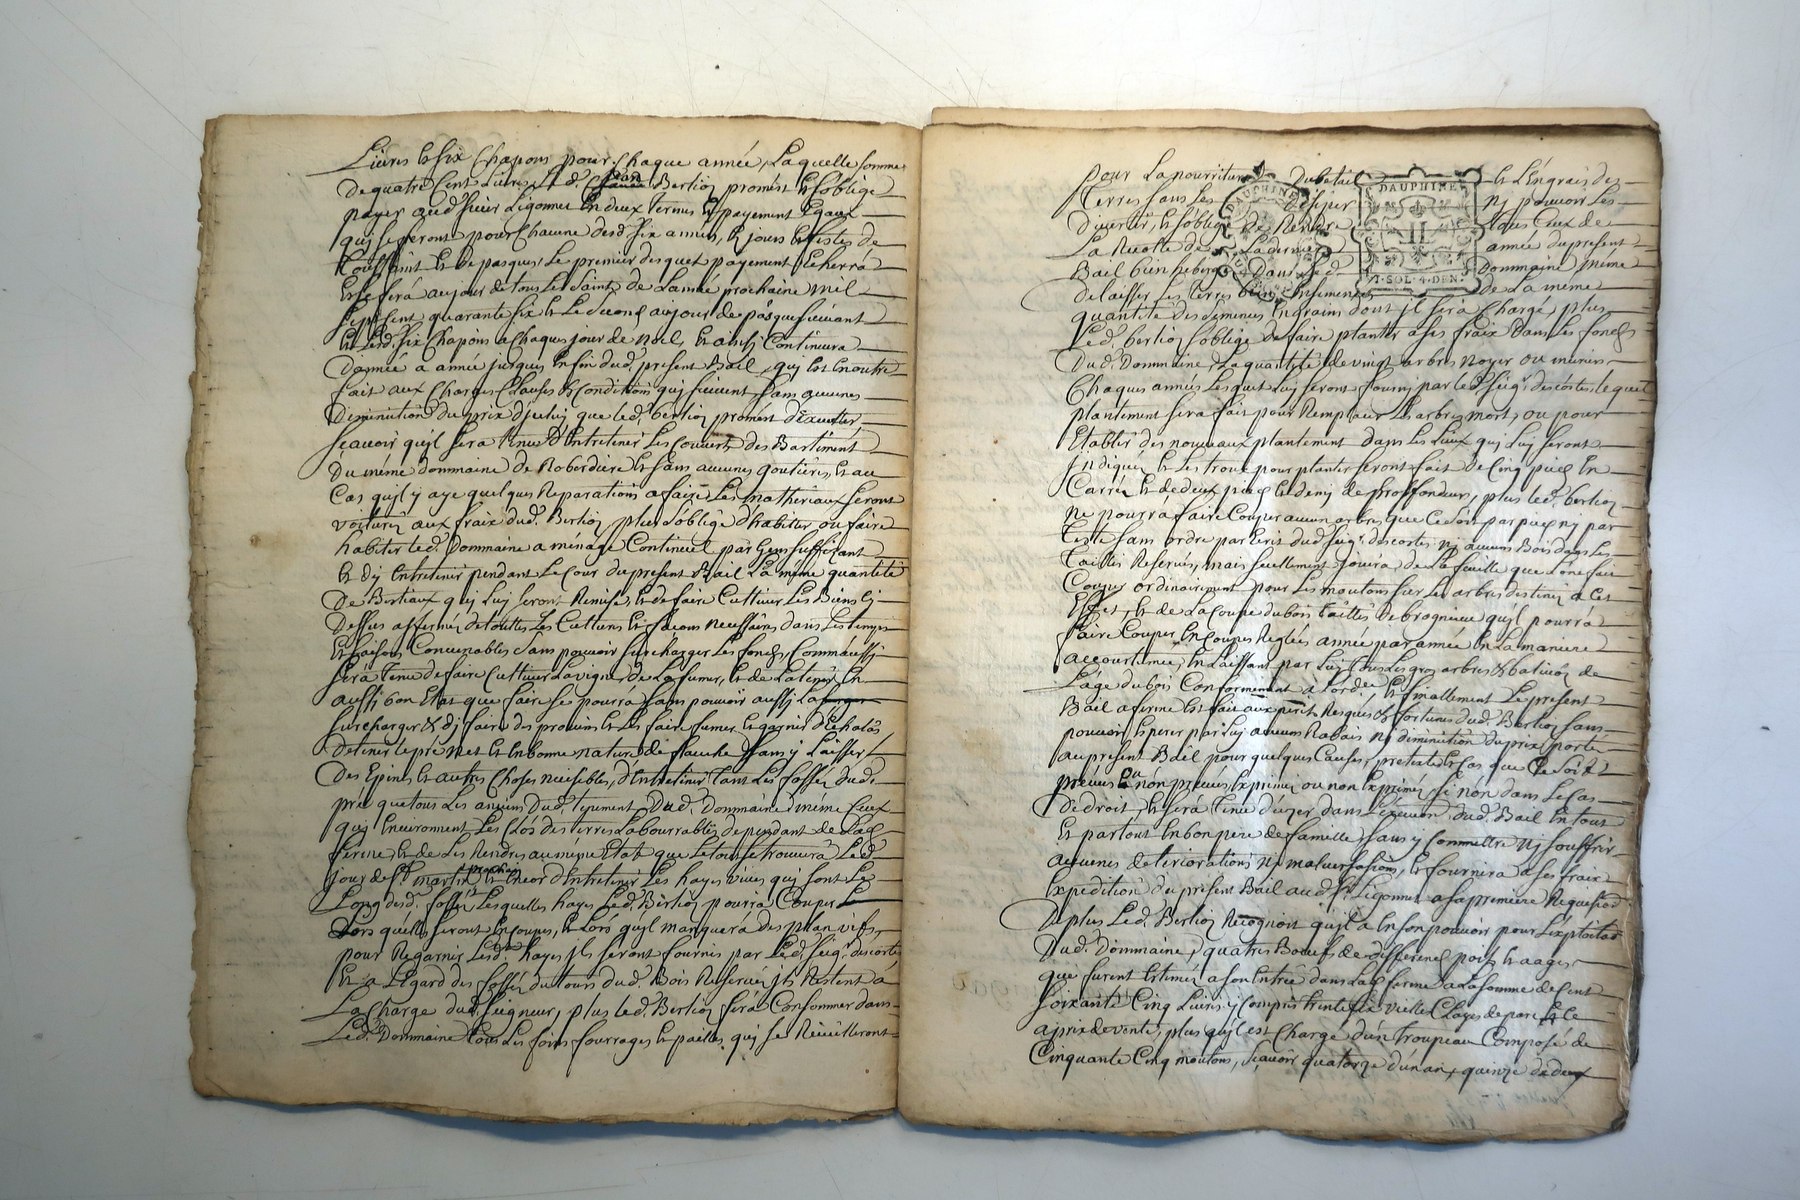 Livres et six chapons pour chaque année, Laquelle somme
De quatre Cent Livres Led. Bertion promest et s'oblige
payer aud sieur Ligonnet En deux termes et payement Egaux
quj se feront pour Chacune desd. six années, Es jours et festes de
Toussaint et De pasques, Le premier desquet payement Echerra
Et se fera au jour de tous Les Saint de L'année prochaine mil
sept Cent quarante six et Le second au jour de pasque suivant
Et Lesd. six Chapons a Chaques jour de Noel, Et ainsj Continuera
D'année a année jusques En fin dud. present Bail, quj est En outre
fait aux Charges Clauses et Conditions quj suivent sans aucunes
Diminution du prix D'jceluj que led. bertion promest D'executer
sçavoir qu'jl sera tenu D'Entretenir Les Couvert des Bastiment
Du même dommaine de Roberdiere et sans aucunes goutieres, et au
Cas qu'jl y aye quelques Reparations a faire Les matheriaux seront
voiturés aux fraix dud. Bertion, plus s'oblige d'habiter ou faire
habiter led. Dommaine a ménage Continuel par Gens suffisant
Et d'y Entretenir pendant Le Cour du present Bail La même quantité
De Bestiaux quj Luj seront Remise, Et de faire Cultiver Les Biens Cy
Dessus affermés de touttes Les Cultures et façons necessaires dans Les temps
Et saisons Convenables sans pouvoir surcharger Les fonds, Comm'aussj
sera tenu de faire Cultiver La vigne de La fumer, et de La tenir En
aussj bon Etat que faire se pourra sans pouvoir aussj La
surcharger & d'j faire des provins et Les faire fumer Et garnir d'Echalas
De tenir Le pré Net et En bonne nature de fauche sans y Laisser
Des Epines et autres Choses nuisibles, d'Entretenir tant Les fossés dud.
pré que tous Les anciens Dud. tenement Dud. Dommaine même Ceux
quj Environnent Les Clos des terres Labourrables dependant de Lad.
ferme, et de Les Rendre au même Etat que Le tout se trouvera Led.
jour de st martin prochain d'Entretenir Les hayes vives quj sont Le
Long desd. fossés Lesquelles hayes Led. Bertion pourra Couper
Lors qu'elles seront En Coupes, et Lors qu'jl manquera des plan vifs
pour Regarnir Lesd. hayes jls seront fournis par Led. seigr. descotes
Et a L'Egard des fossés du tours dud. Bois Reservé jls Restent a
La Charge dud. seigneur, plus led. Bertion fera Consommer dans
Led. Dommaine tous Les foins fourrages et pailles quj se Recuilleront
pour La nourriture Du betail et L'Engrais des
Terres sans Les nj pouvoir Les
Divertir, et s'oblige De Rendre tous Ceux de
La Recolte de La derniere année du present
Bail bien heberg Dans Led. Dommaine même
delaisser Les terres bien Ensemencées de La même
quantité des semences En grains dont jl sera Chargé plus
Led. bertion s'oblige de faire planter a ses fraix Dans Les fonds
Dud. Dommaine La quantité de vingt arbres Noyer ou muriers
Chaques années Lesquet Luj seront fournj par led. seigr. descotes, lequel
plantement sera fait pour Remplacer Les arbres morts, ou pour
Etablir des nouveaux plantement dans Les Lieux quj Luj seront
Indiqués et Les troux pour planter seront fait de Cinq pieds En
Carré et de deux pieds et demj de proffondeur, plus led. bertion
ne pourra faire Couper aucun arbres que Ce soit par pieds nj par
Teste sans ordre par Ecris dud seigr. descotes nj aucuns Bois dans Les
Taillis Reservés, mais seullement jouira de La feuille que L'on fait
Couper ordinairement pour Les moutons sur Les arbres destinés a Cet
Effet, et de La Coupe du bois Taillis De brognieue qu'jl pourra
faire Couper En Coupes Reglées année par année En La maniere
accoutumée, En Laissant par Luj tous Les gros arbres & bativeau de
L'age du bois Conformement a l'ordce., Et finallement Le present
Bail a ferme Est fait aux perils Risques et fortunes dud. Bertion sans
pouvoir Esperer par Luj aucuns Rabais nj diminution du prix porté
au present Bail pour quelques Causes, pretexte et Cas que Ce soit
prevus Ou non prevus Exprimés ou non Exprimés si non dans Le Cas
De droit, et sera tenu d'user dans L'Execution dud. Bail En tout
Et par tout En bon pere de famille sans y Commettre nj souffrir
aucunes deteriorations nj malversations, et fournira a ses fraix
Expedition du present Bail aud. sr. Ligonnet a sa premiere Requisition
De plus Led. Bertion Recognoit qu'jl a En son pouvoir pour L'Exploitation
Dud. Dommaine, quatres Boeufs de different poils et aages
que furent Estimés a son Entrée dans Lad. ferme a La somme de Cent
soixante Cinq Livres y Compris trente six vielles Clayes de parc Et Ce
a prix de vente, plus qu'jl est Chargé d'un troupeau Composé de
Cinquante Cinq moutons, sçavoir quatorze d'un an, quinze de deux
DAUPHINE
DAUPHINE
II
1·SOL·4·DEN